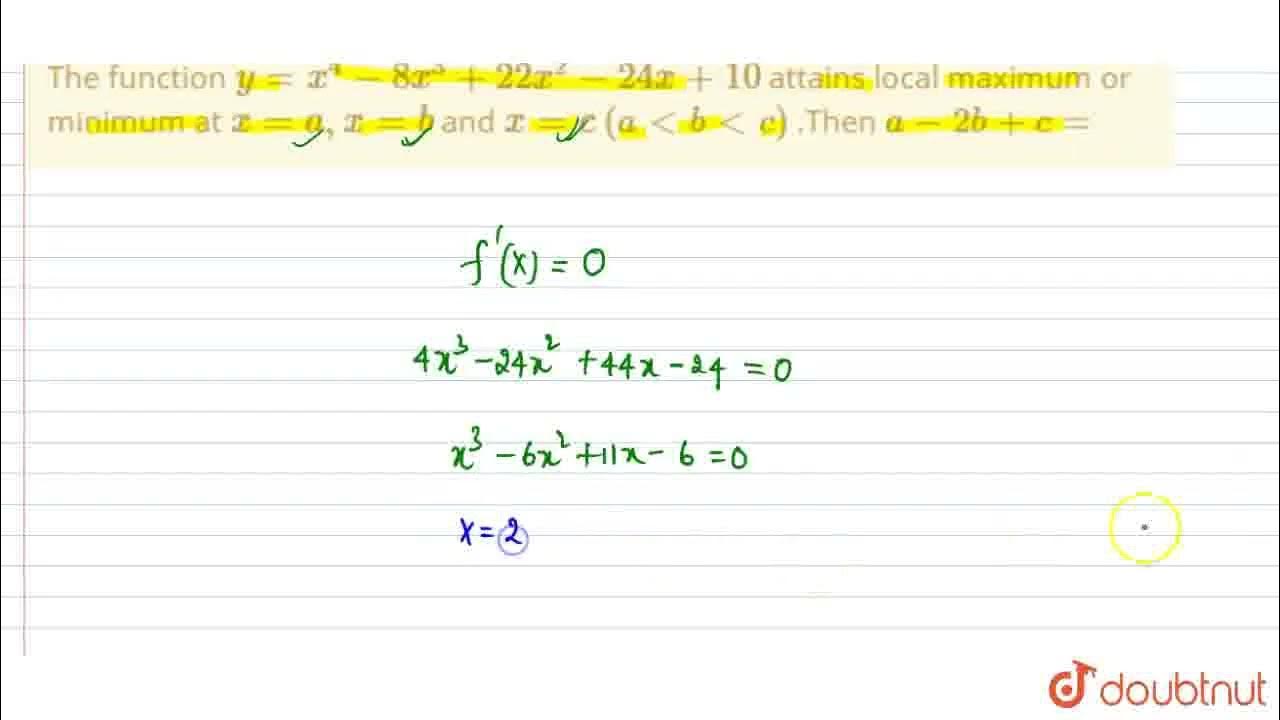 The function y = x⁴ − 8x³ + 22x² − 24x + 10 attains local maximum or
minimum at x = a, x = b and x = c (a < b < c) .Then a − 2b + c =
f'(x) = 0
4x³ − 24x² + 44x − 24 = 0
x³ − 6x² + 11x − 6 = 0
x = 2
doubtnut